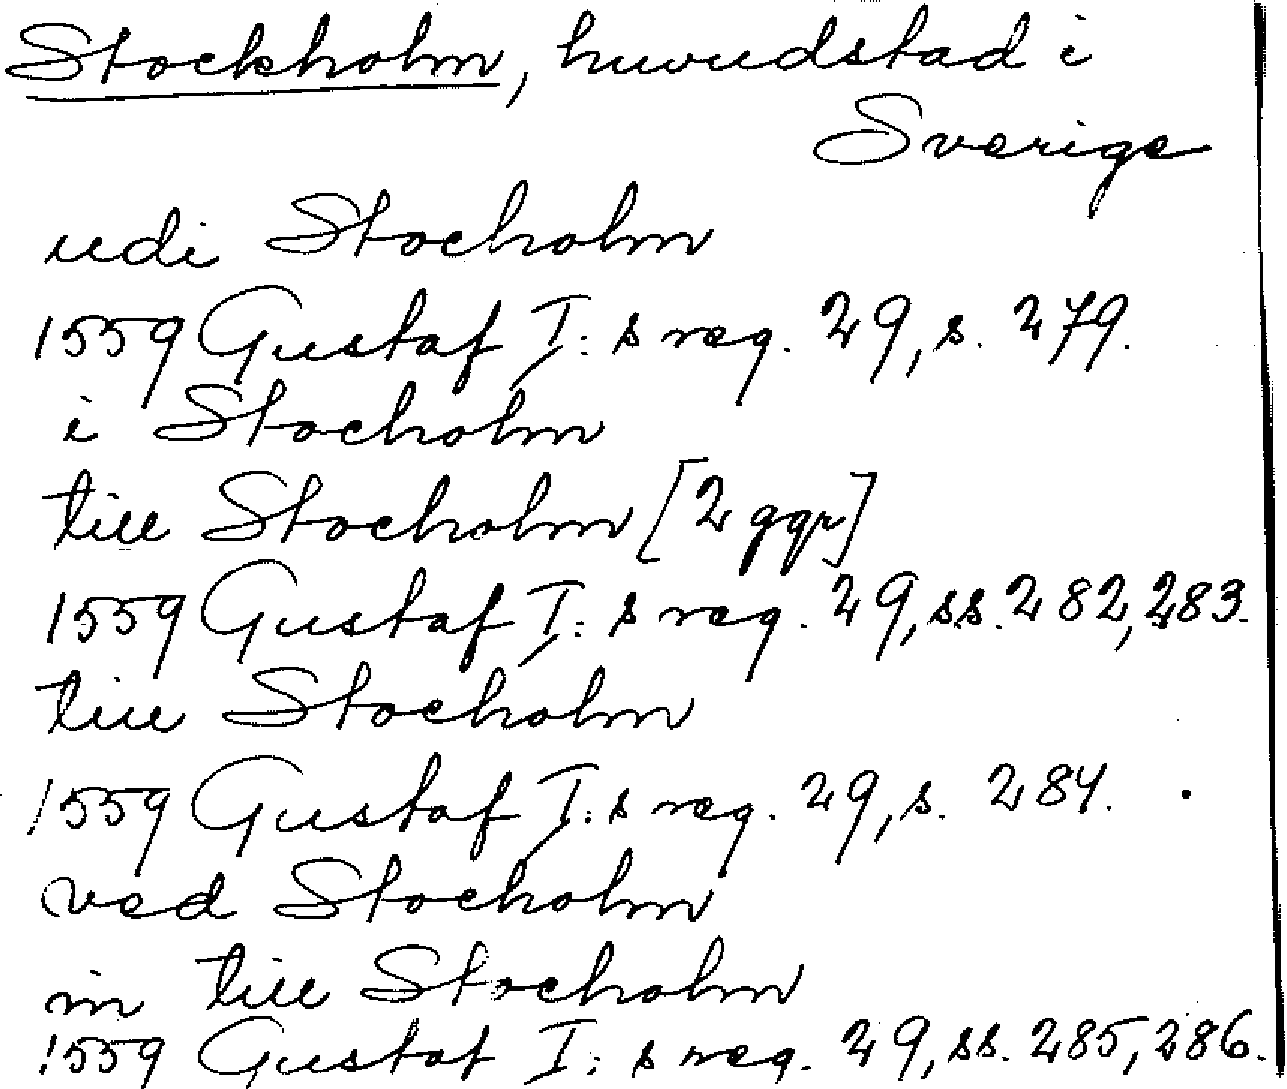 Stockholm, huvudstad i
Sverige
udi Stocholm
1559 Gustaf I:s reg. 29, s. 279.
i Stocholm
till Stocholm [2 ggr]
1559 Gustaf I:s reg. 29, ss. 282, 283.
till Stocholm
1559 Gustaf I:s reg. 29, s. 284.
ved Stocholm
in till Stocholm
1559 Gustaf I:s reg. 29, ss. 285, 286.